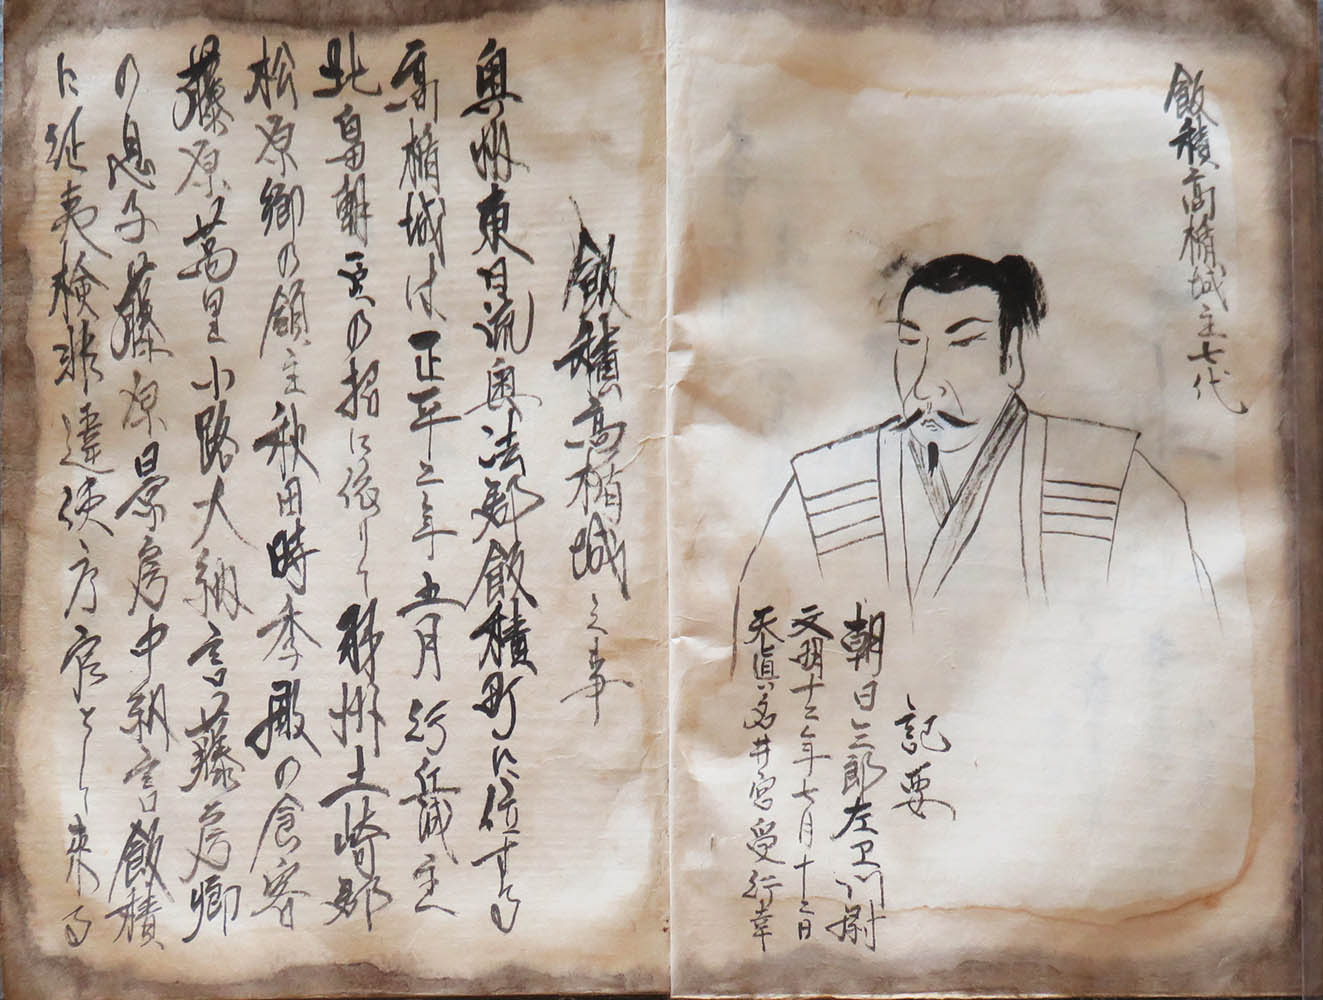 飯積高楯城主七代
記要
朝日三郎左卫门尉
文明十二年七月十二日
天真名井宮受行幸
飯積高楯城之事
奥州東日流奥法郡飯積町に位する
高楯城は正平二年五月行丘城主
北畠朝
の招に依りて
州土崎郡
松原郷の領主秋田時季殿の食客
藤原萬里小路大納言藤房卿
の息子藤原景房中納言飯積
に征夷検非違使庁官として来る